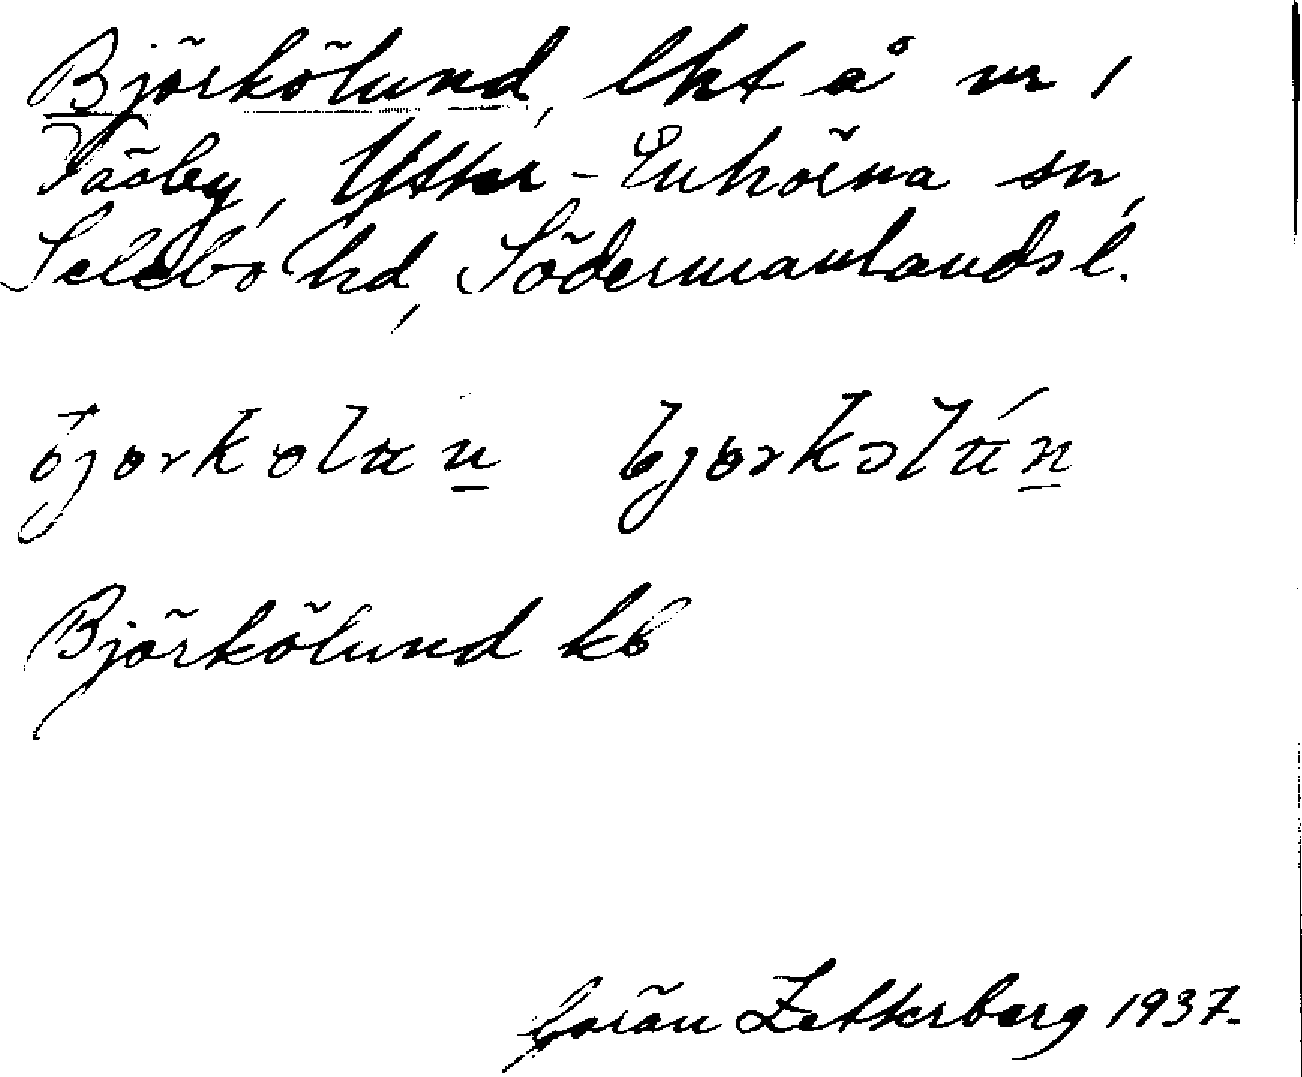 Björkölund, lht å nr 1
Väsby, Ytter-Enhörna sn,
Selebo hd, Södermanlands l.
bjorkolun bjorkəlun
Björkölund kb
Göran Zetterberg 1937.